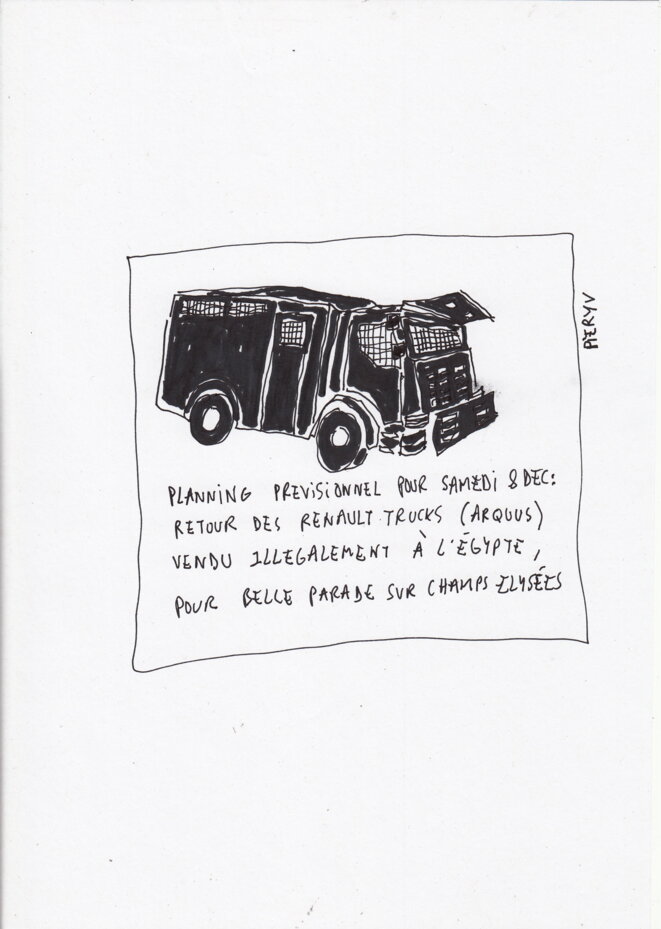 PLANNING PREVISIONNEL POUR SAMEDI 8 DEC:
RETOUR DES RENAULT TRUCKS (ARQUUS)
VENDU ILLEGALEMENT À L'ÉGYPTE,
POUR BELLE PARADE SUR CHAMPS ELYSÉES
PIERYV